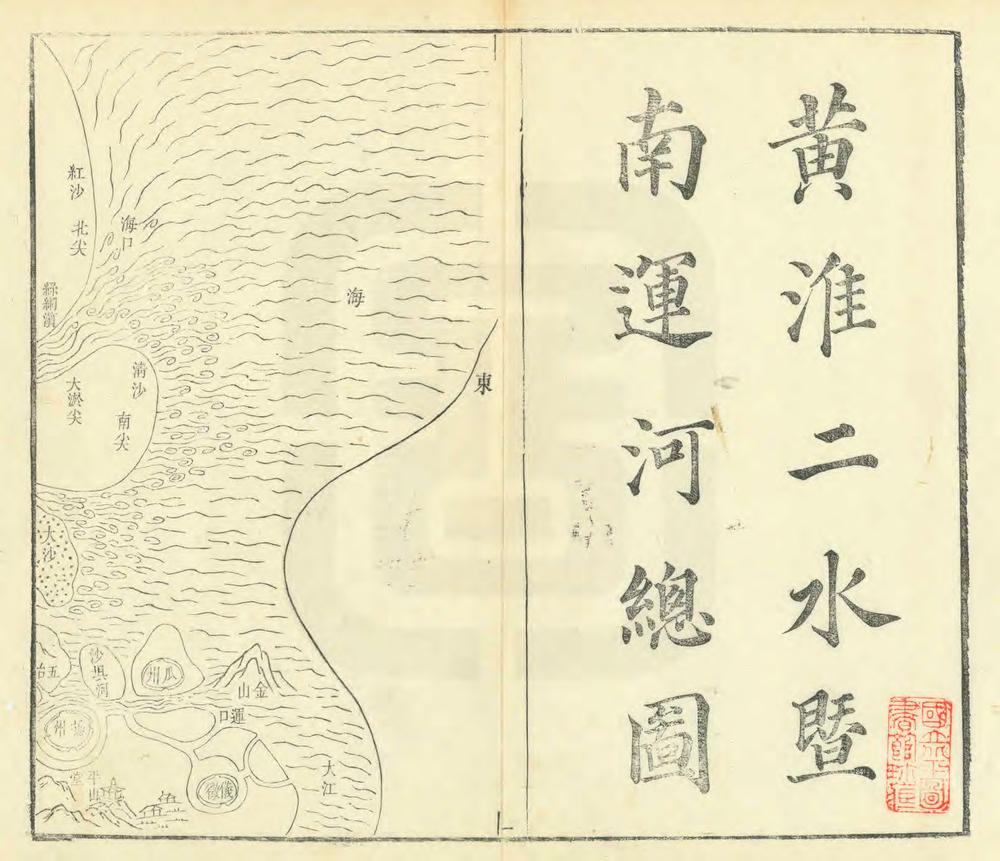 黄淮二水暨
南運河總圖
東
海
海口
紅沙
北尖
清沙
南尖
大淤尖
大沙
五台
沙垻河
瓜州
金山
運口
揚州
儀徵
大江
平山堂